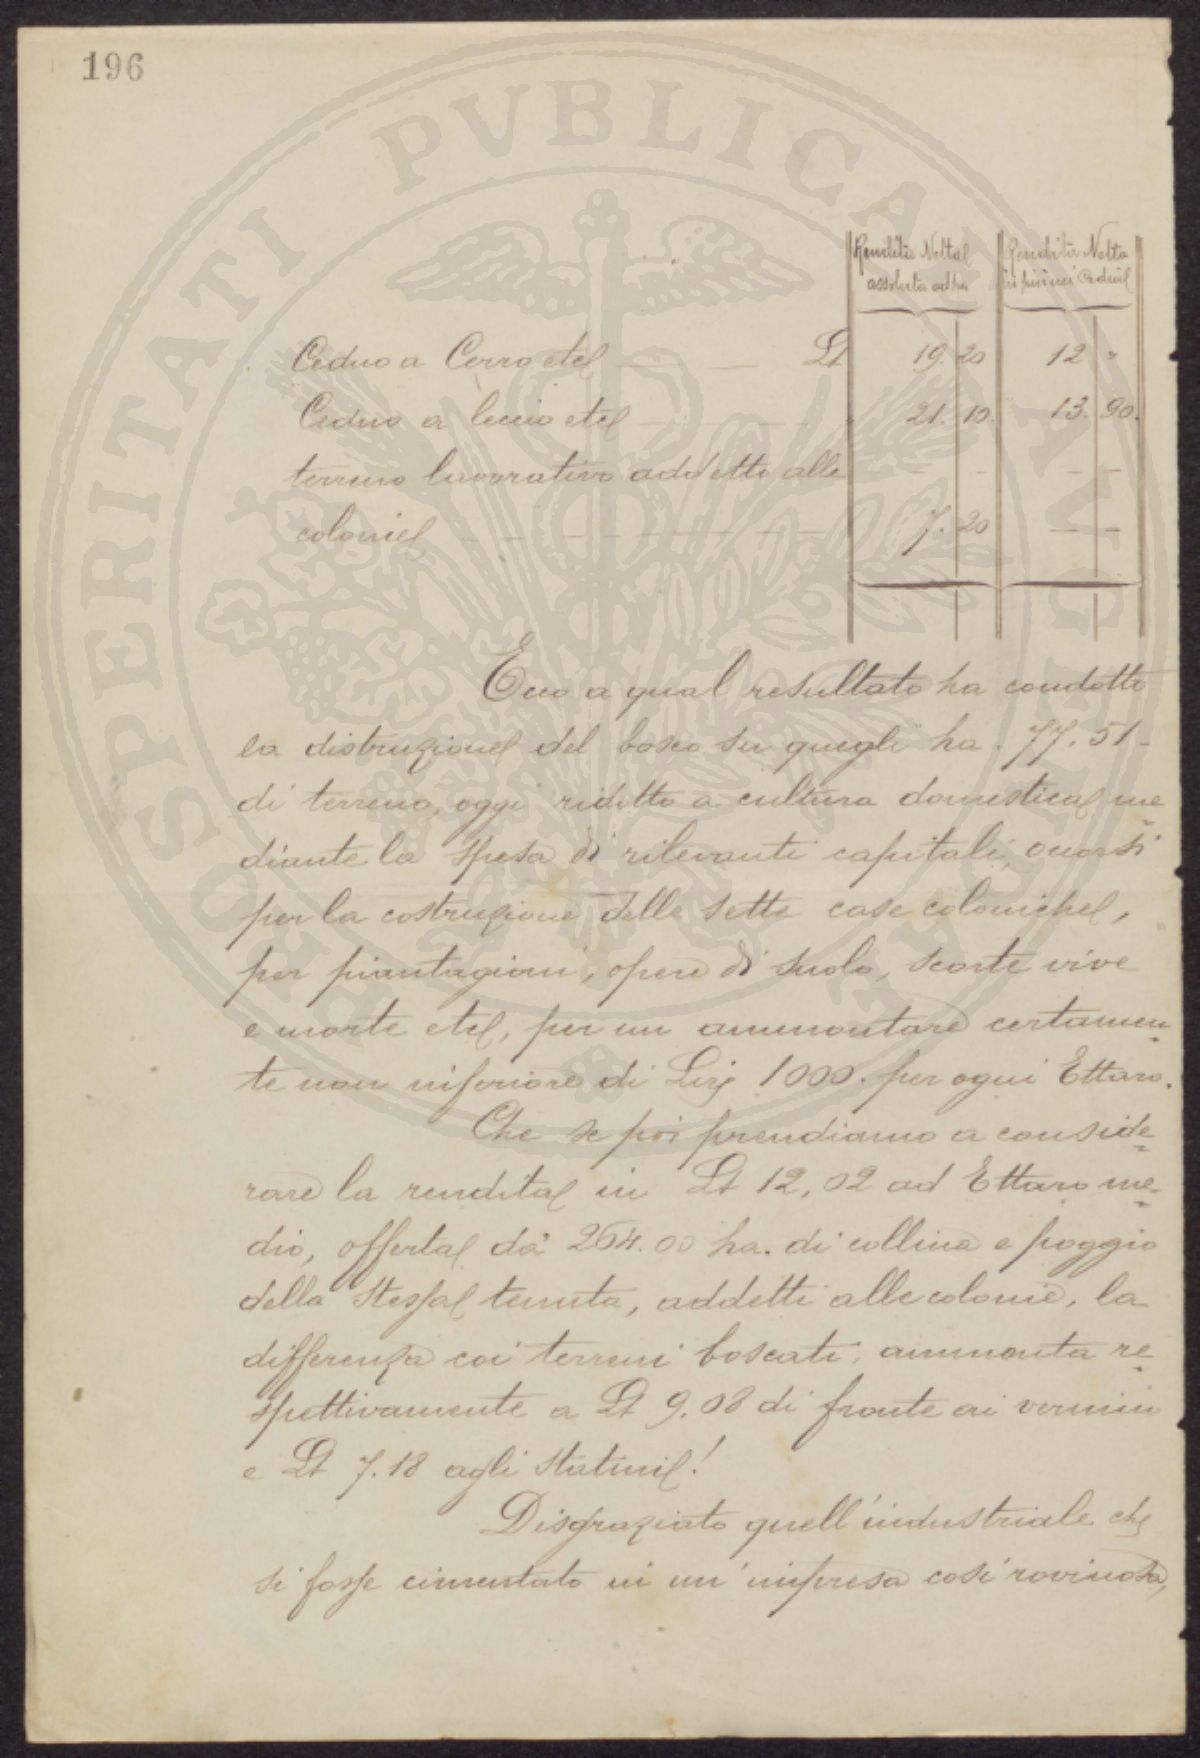 196
PROSPERITATI PVBLICAE AVGENDAE
Rendita Netta Rendita Netta
assoluta ad ha
Ceduo a Cerro etc Lt 19. 20 12 "
Ceduo a leccio etc 21. 10. 13. 90.
terreno lavorativo addetto alle - - - -
colonie 7. 20 - -
Ecco a qual resultato ha condotto
la distruzione del bosco su quegli ha. 77. 51-
di terreno, oggi ridotto a cultura domestica me
diante la spesa di rilevanti capitali, occorsi
per la costruzione delle sette case coloniche,
per piantagioni, opere di suolo, scorte vive
e morte etc, per un ammontare certamen-
te non inferiore di Lire 1000. per ogni Ettaro.
Che se poi prendiamo a conside-
rare la rendita in Lt 12,02 ad Ettaro me-
dio, offerta da 264.00 ha. di collina e poggio
della stessa tenuta, addetti alle colonie, la
differenza coi terreni boscati, ammonta re-
spettivamente a Lt 9.08 di fronte ai vernini
e Lt 7.18 agli statini!
Disgraziato quell'industriale che
si fosse cimentato in un'impresa così rovinosa,